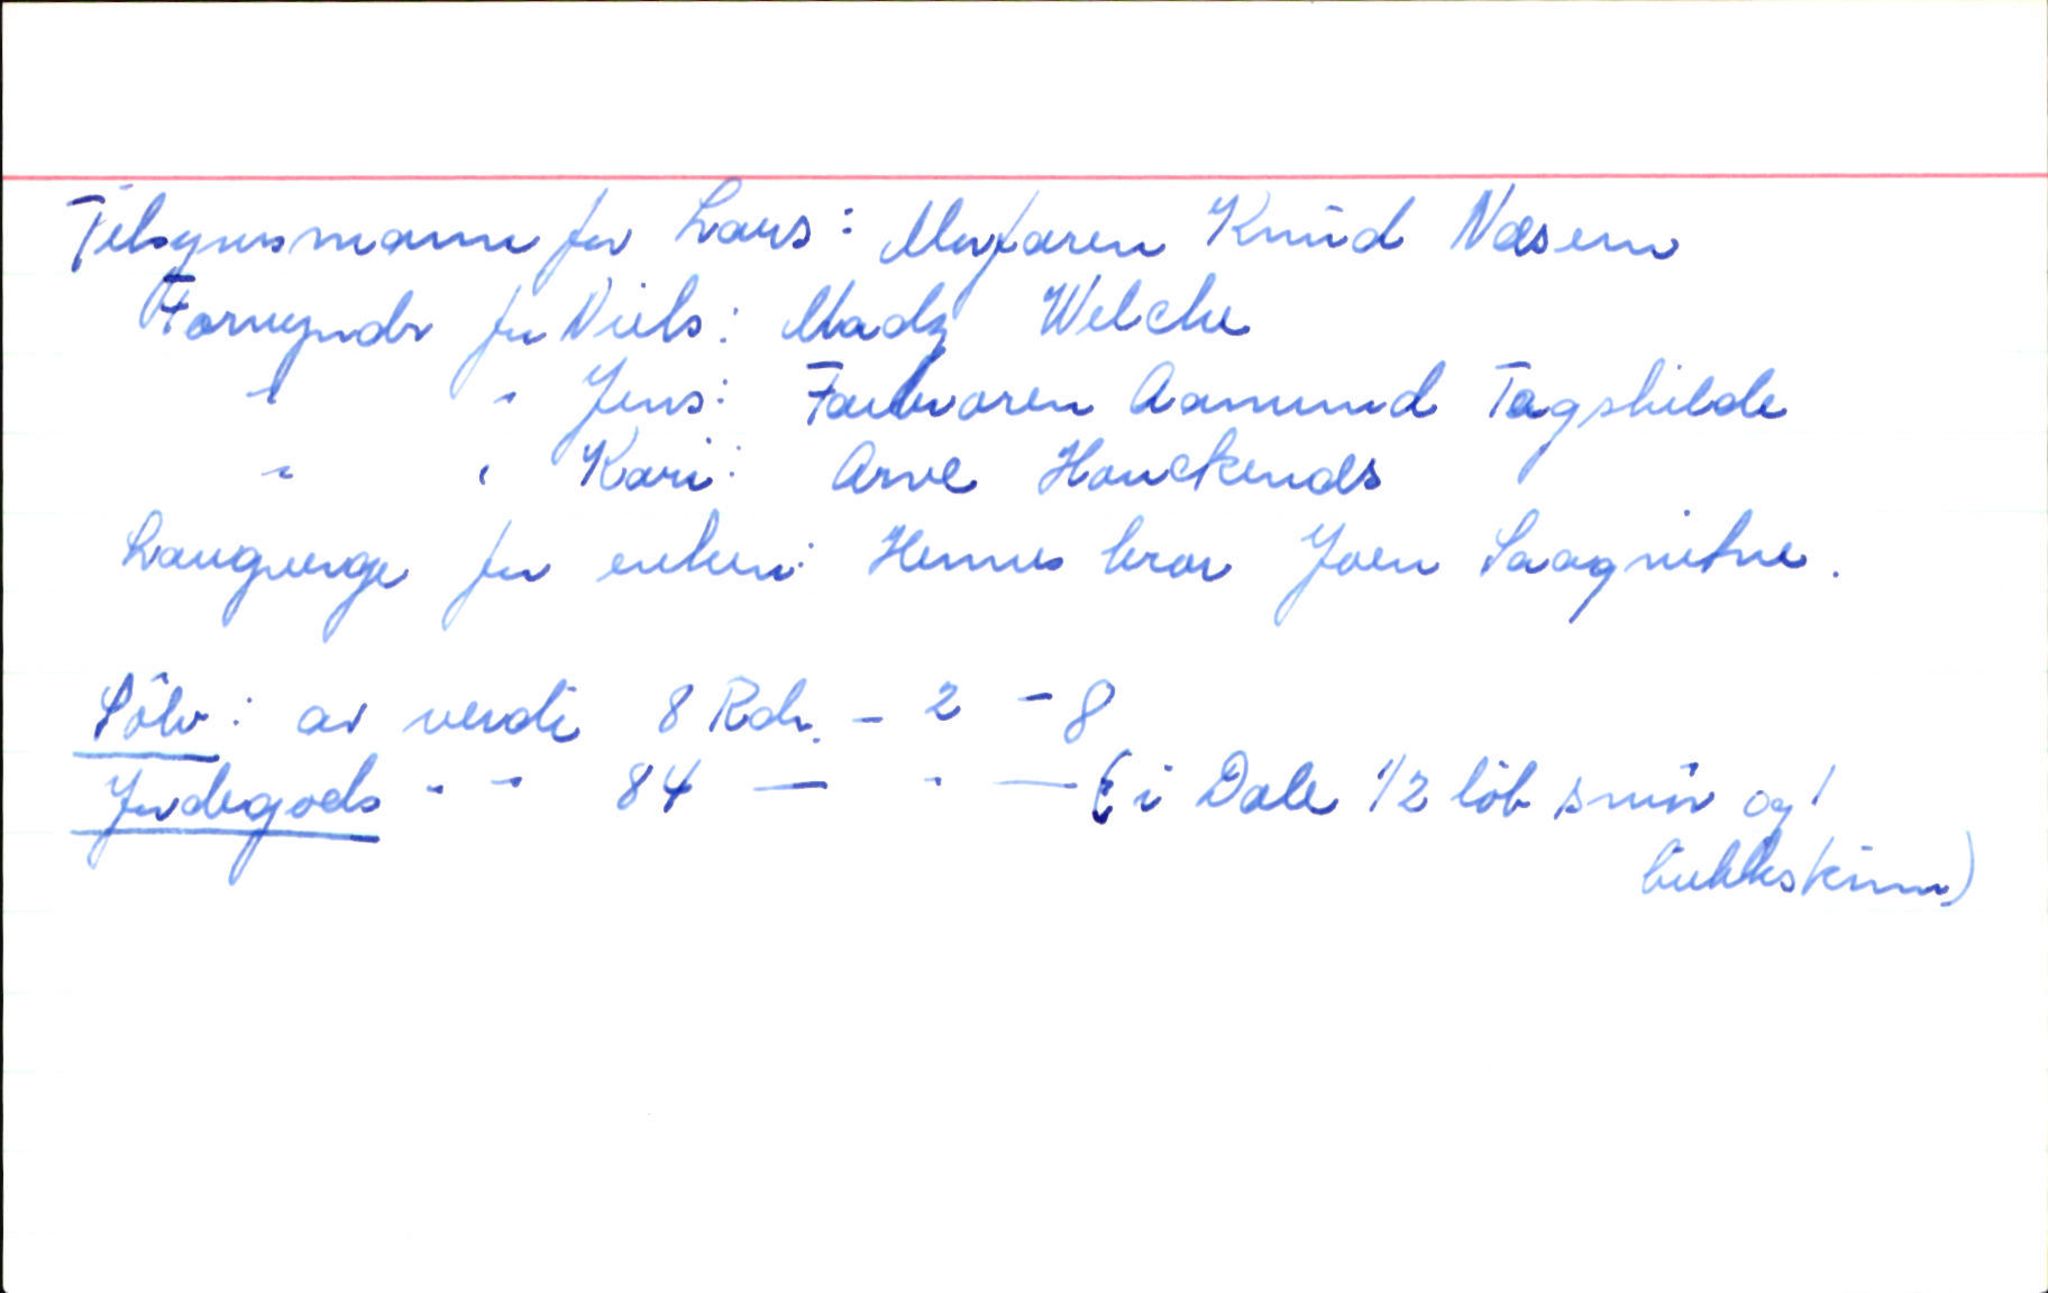 Tilsynsmann for Lars: Morfaren Knud Næsem
Formyndr for Niels: Madz Welche
" " Jens: Farbroren Aamund Tagshilde
" " Kari: Arne Houckenæs
Laugverge for enken: Hennes bror Joen Saaqvitne.
Sölv: av verdi 8 Rdr. – 2 – 8
Jordegods " " 84 — " — (i Dale 1/2 löb smör og 1
bukkskinn)